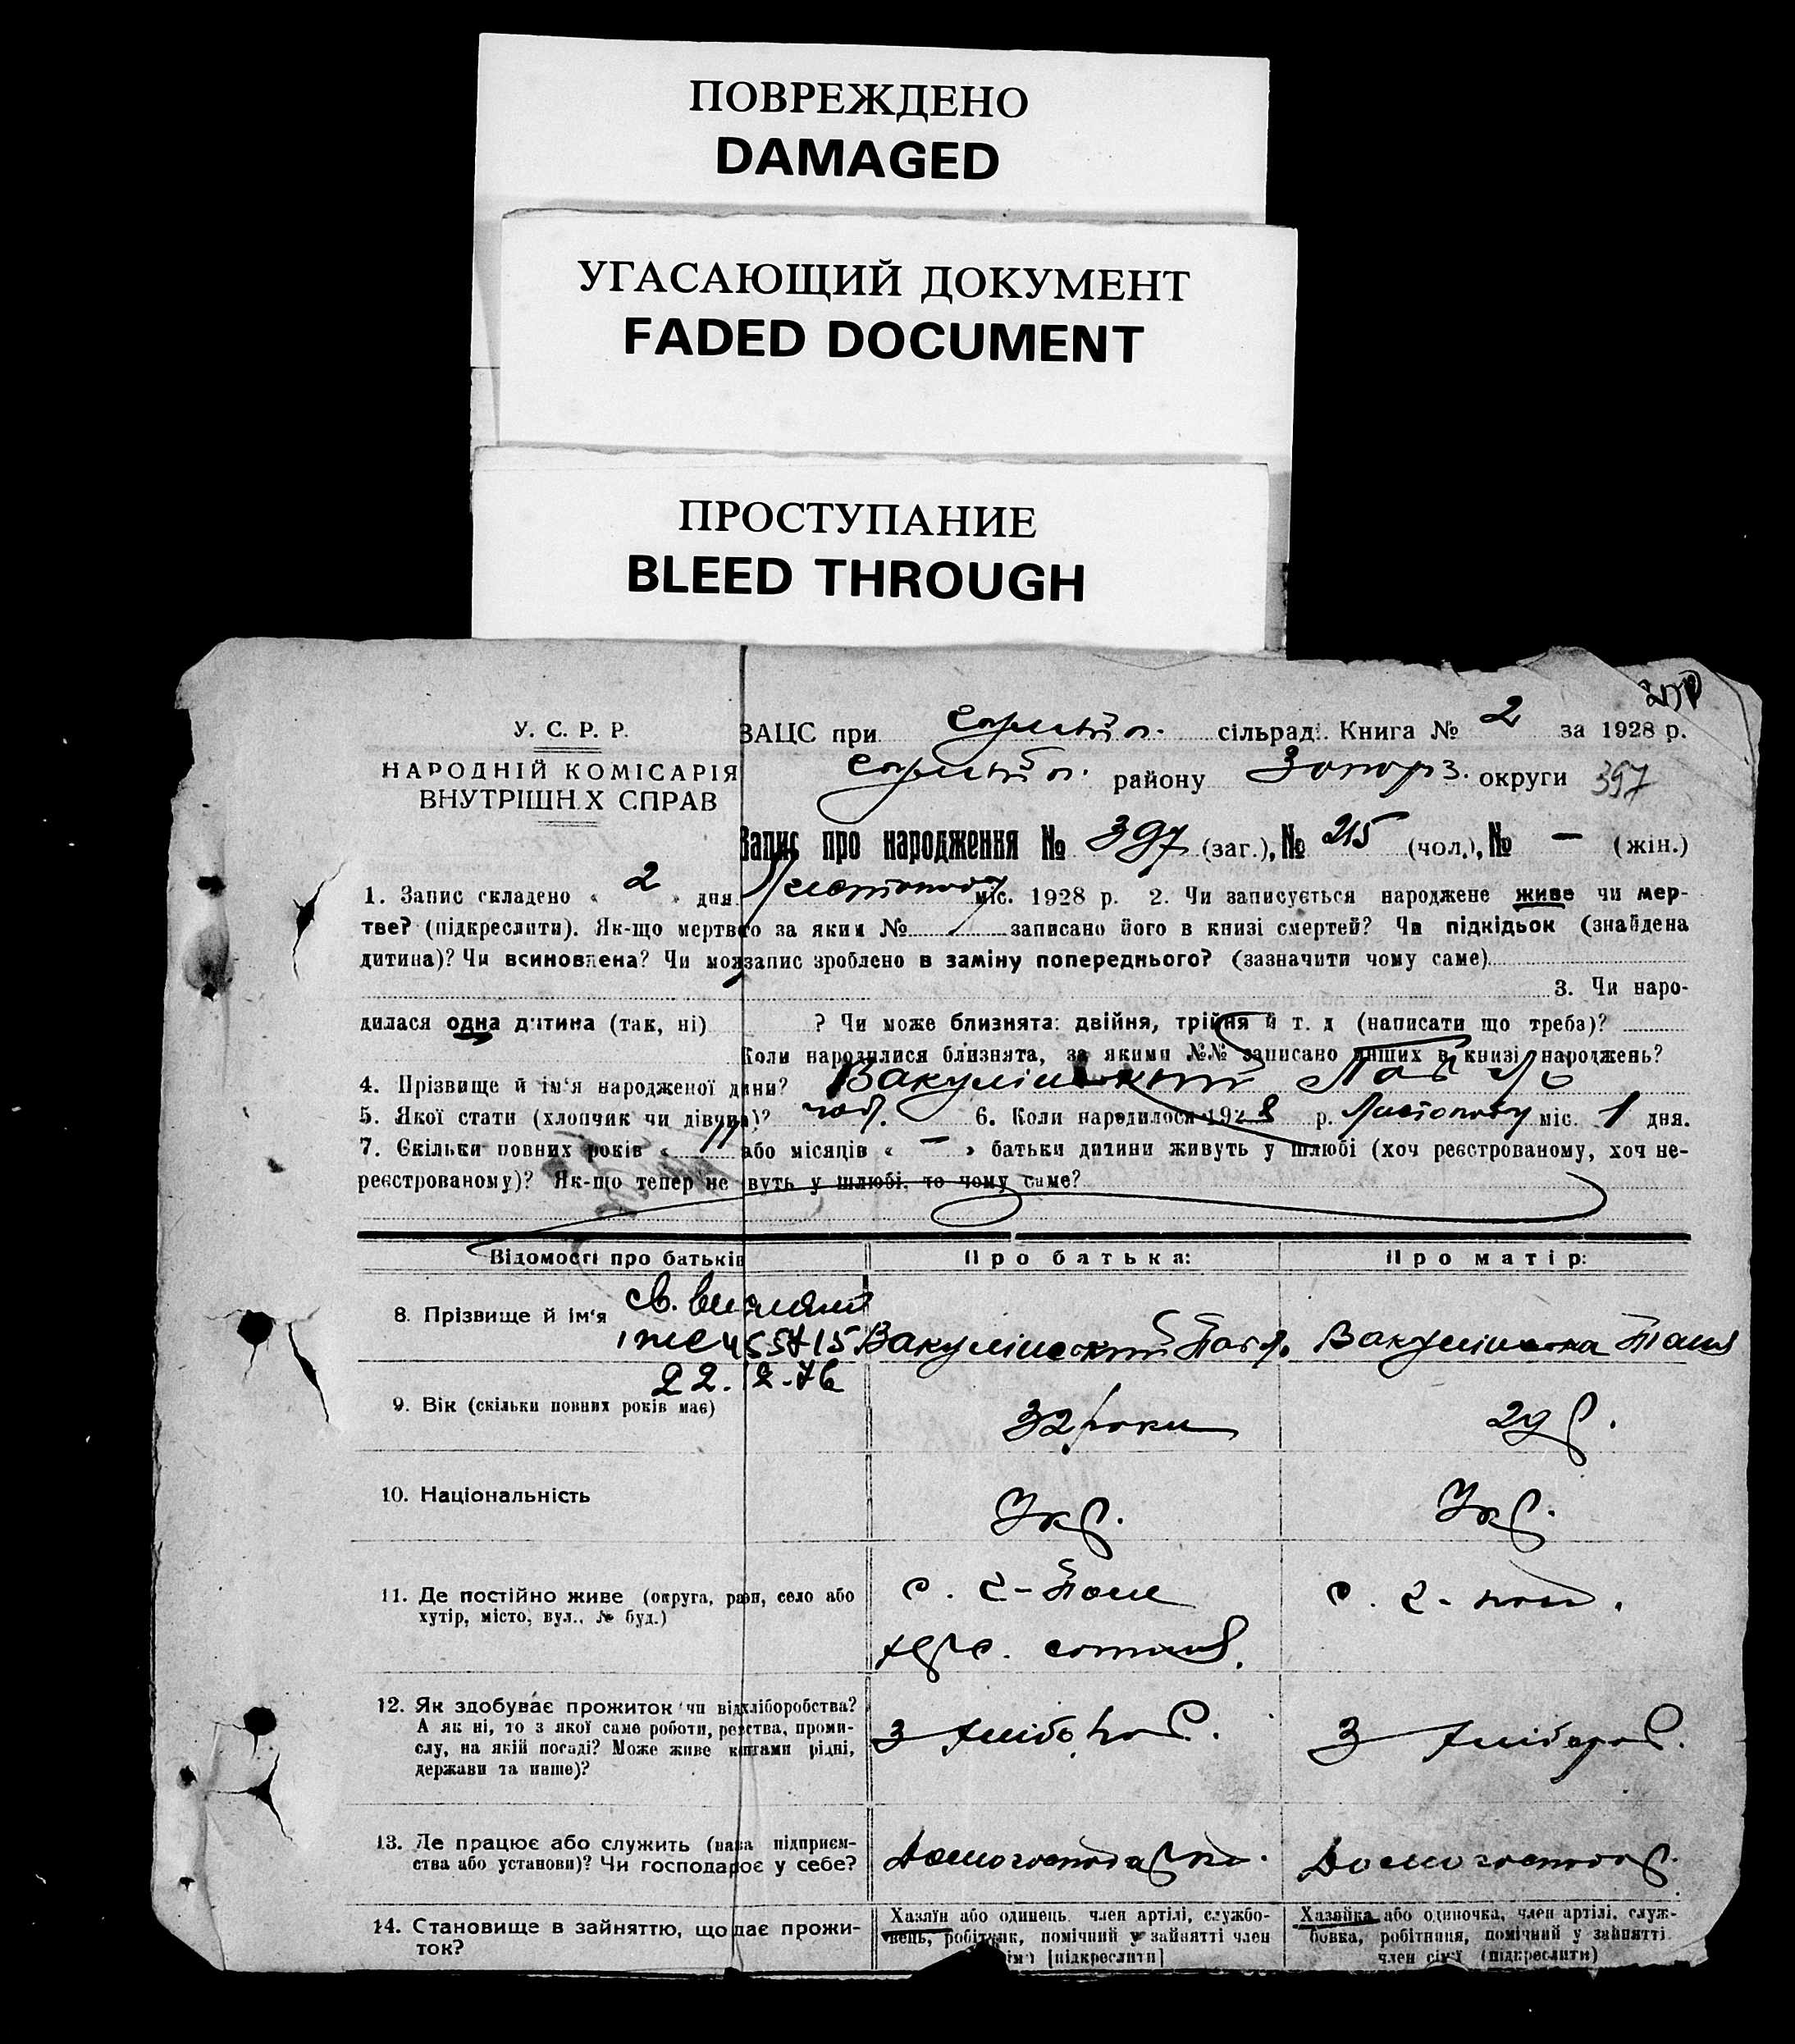 ПОВРЕЖДЕНО
DAMAGED
УГАСАЮЩИЙ ДОКУМЕНТ
FADED DOCUMENT
ПРОСТУПАНИЕ
BLEED THROUGH
У. С. Р. Р.
НАРОДНІЙ КОМІСАРІЯ
ВНУТРІШН Х СПРАВ
ЗАЦС при сільрад. Книга № 2 за 1928 р.
району Запоріз. округи 397
Запис про народження № 397 (заг.), № 215 (чол.), № — (жін.)
1. Запис складено « 2 » дня Листопаду міс. 1928 р. 2. Чи записується народжене живе чи мер-
тве? (підкреслити). Як-що мертв го за яким № записано його в книзі смертей? Чи підкідьок (знайдена
дитина)? Чи всиновлена? Чи мож запис зроблено в заміну попереднього? (зазначити чому саме)
3. Чи наро-
дилася одна дитина (так, ні) ? Чи може близнята: двійня, трійня й т. д (написати що треба)?
Коли народилися близнята, за якими №№ записано инших в книзі народжень?
4. Прізвище й ім'я народженої д ини? Вакулінський Павло
5. Якої стати (хлопчик чи дівчина)? чол. 6. Коли народилося 1928 р. Листопаду міс. 1 дня.
7. Скільки повних років « 11 або місяців « — » батьки дитини живуть у шлюбі (хоч реєстрованому, хоч не-
реєстрованому)? Як-що тепер не вуть у шлюбі, то чому саме?
Відомості про батьків Про батька: Про матір:
8. Прізвище й ім'я Вакулінський Павло Вакулінська
22. 2-76
9. Вік (скільки повних років має) 32 роки 29 р.
10. Національність Укр. Укр.
11. Де постійно живе (округа, район, село або
хутір, місто, вул., № буд.)
с. Г-Поле с. Г-поле.
12. Як здобуває прожиток чи від хліборобства?
А як ні, то з якої саме роботи, ре ства, проми-
слу, на якій посаді? Може живе к штами рідні,
держави та инше)?
з хлібороб. З хлібороб.
13. Де працює або служить (назва підприєм-
ства або установи)? Чи господарює у себе?
Домогосподарка. Домогосподар.
14. Становище в зайняттю, що дає прожи-
ток?
Хазяїн або одинець, член артілі, службо-
вець, робітник, помічний у зайнятті член
ім'ї [підкреслити]
Хазяйка або одиночка, член артілі, служ-
бовка, робітниця, помічний у зайнятті
член сім'ї (підкреслити)